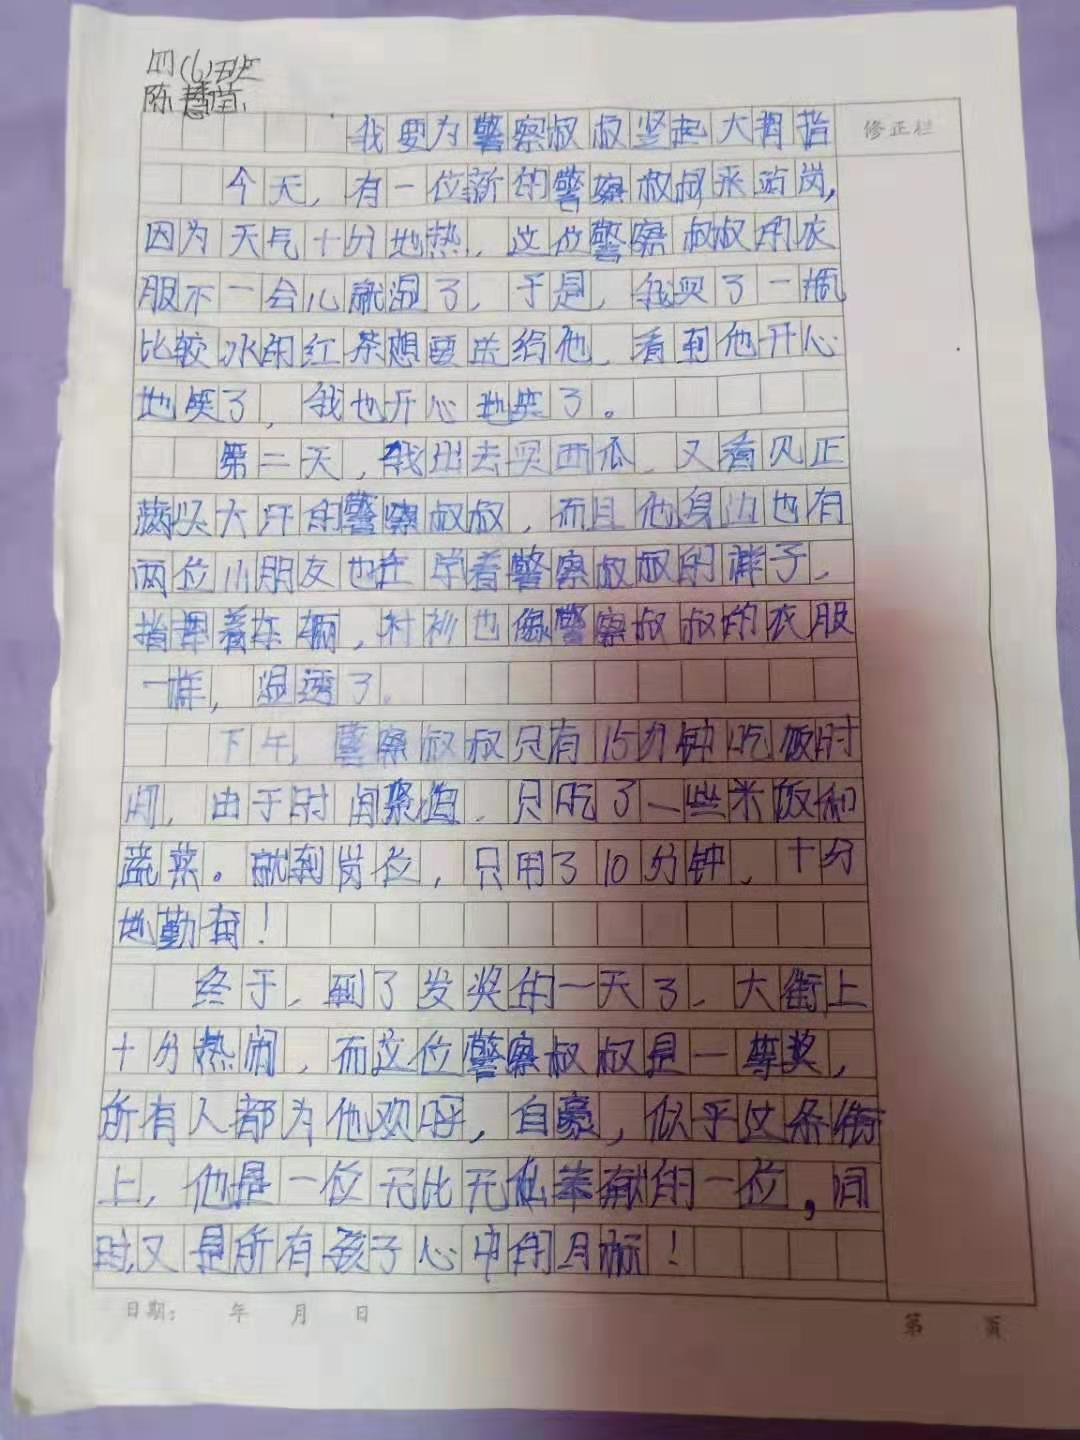 四(6)班
陈慧苗
我要为警察叔叔竖起大拇指
修正栏
今天,有一位新的警察叔叔来站岗,
因为天气十分地热,这位警察叔叔的衣
服不一会儿就湿了,于是,我买了一瓶
比较冰的红茶想要送给他,看到他开心
地笑了,我也开心地笑了。
第二天,我出去买西瓜,又看见正
满头大汗的警察叔叔,而且他身边也有
两位小朋友也在学着警察叔叔的样子,
指挥着车辆,衬衫也像警察叔叔的衣服
一样,湿透了。
下午,警察叔叔只有15分钟吃饭时
间,由于时间紧迫,只吃了一些米饭和
蔬菜。就到岗位,只用了10分钟,十分
地勤奋!
终于,到了发奖的一天了,大街上
十分热闹,而这位警察叔叔是一等奖,
所有人都为他欢呼,自豪,似乎这条街
上,他是一位无比无私奉献的一位,同
时,又是所有孩子心中的目标!
日期: 年 月 日
第 页